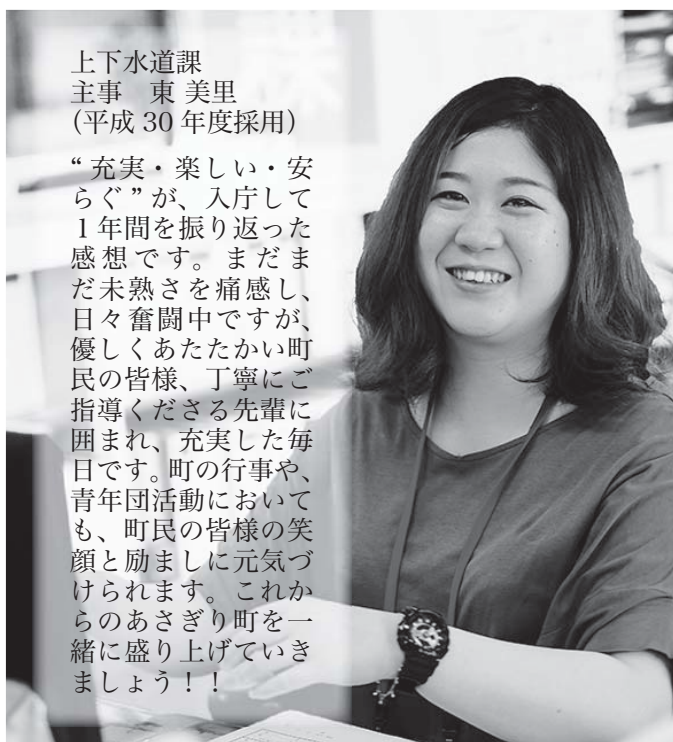 上下水道課
主事　東 美里
(平成 30 年度採用)
“ 充実・楽しい・安
らぐ ” が、入庁して
１年間を振り返った
感想です。まだま
だ未熟さを痛感し、
日々奮闘中ですが、
優しくあたたかい町
民の皆様、丁寧にご
指導くださる先輩に
囲まれ、充実した毎
日です。町の行事や、
青年団活動において
も、町民の皆様の笑
顔と励ましに元気づ
けられます。これか
らのあさぎり町を一
緒に盛り上げていき
ましょう！！